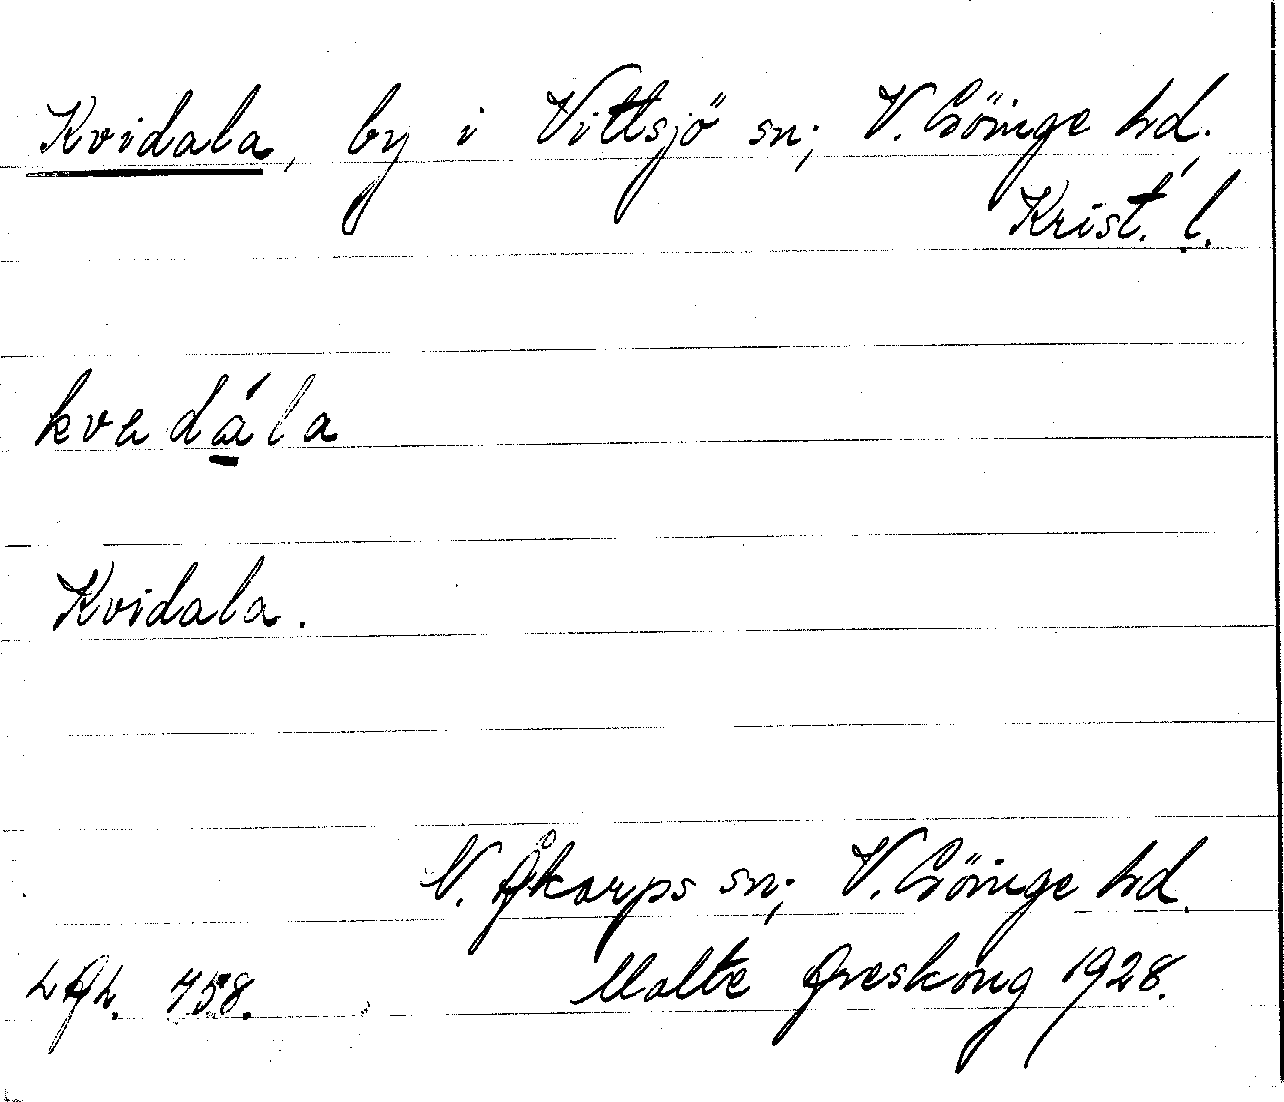 Kvidala, by i Vittsjö sn; V. Göinge hd.
Krist. l.
kvadála
Kvidala.
N. Åkarps sn; V. Göinge hd.
Malte Areskoug 1928.
758.